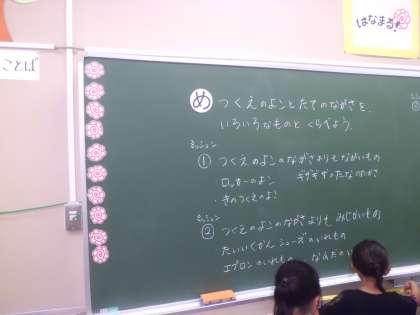 はなまる!
ことば
め つくえのよことたてのながさを
いろいろなものと くらべよう.
ミッション
① つくえのよこのながさよりもながいもの
・ロッカーのよこ
・きのつくえのよこ
ミッション
② つくえのよこのながさよりも みじかいもの
たいいくかん シューズのいれもの
エプロンのいれもの